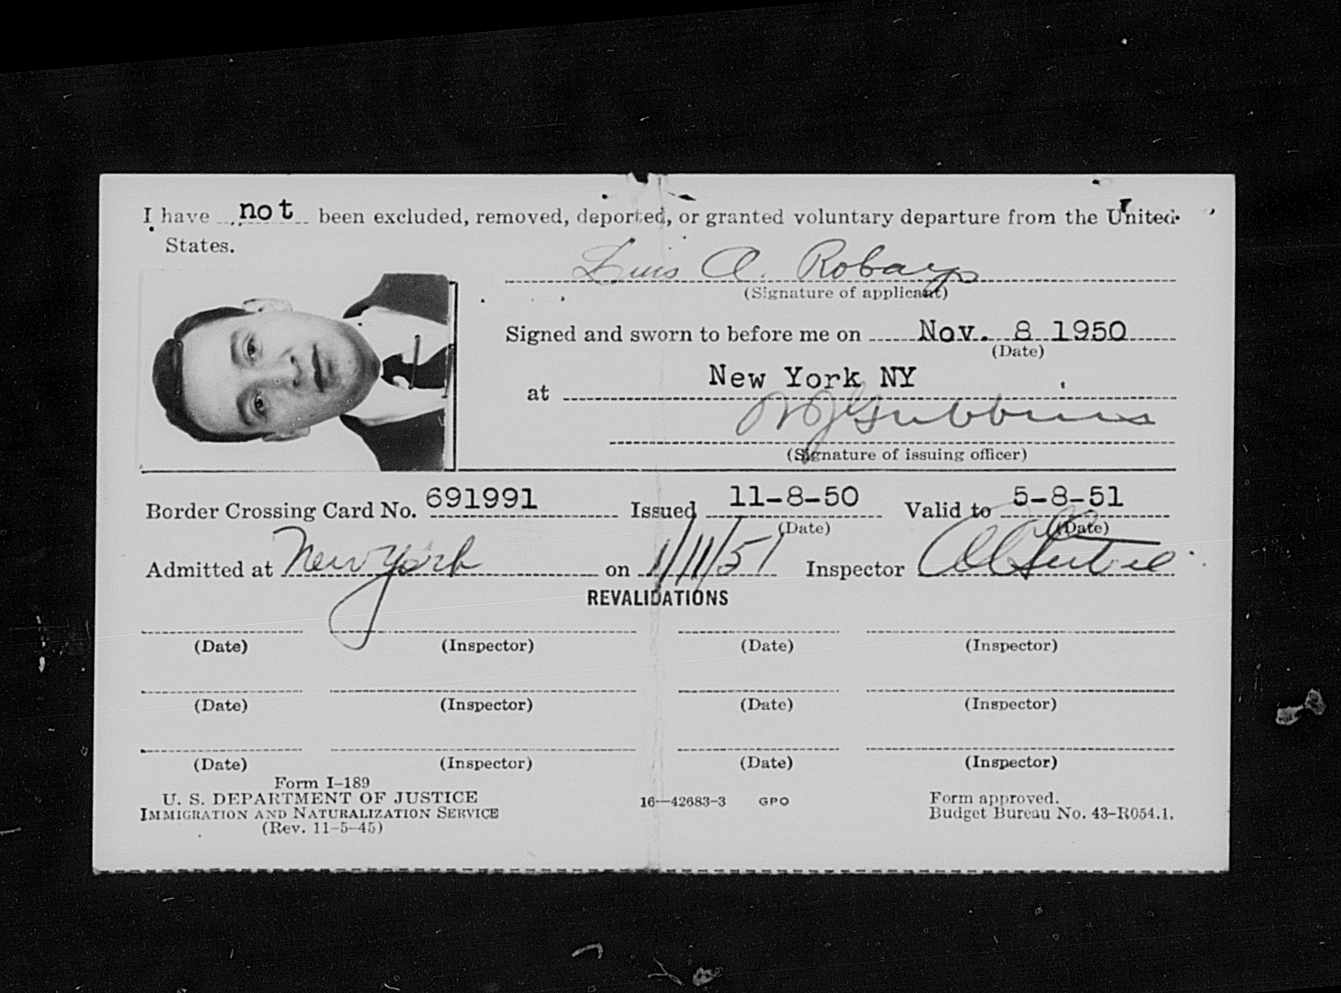 I have not been excluded, removed, deported, or granted voluntary departure from the United
States.
Luis A. Robayo
(Signature of applicant)
Signed and sworn to before me on Nov. 8 1950
(Date)
at New York NY
(Signature of issuing officer)
Border Crossing Card No. 691991 Issued 11-8-50 Valid to 5-8-51
(Date) (Date)
Admitted at New York on 1/11/51 Inspector
REVALIDATIONS
(Date) (Inspector) (Date) (Inspector)
(Date) (Inspector) (Date) (Inspector)
(Date) (Inspector) (Date) (Inspector)
Form I-189
U. S. DEPARTMENT OF JUSTICE
IMMIGRATION AND NATURALIZATION SERVICE
(Rev. 11-5-45)
16—42683-3 GPO
Form approved.
Budget Bureau No. 43-R054.1.